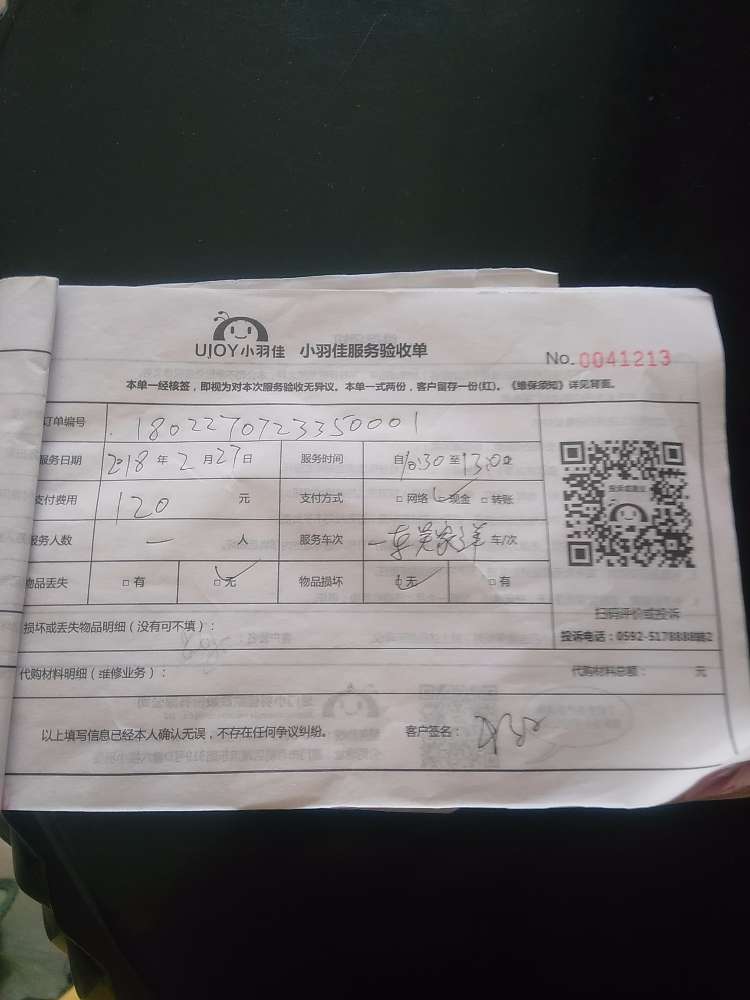 UJOY小羽佳 小羽佳服务验收单 No.0041213
本单一经核签，即视为对本次服务验收无异议。本单一式两份，客户留存一份(红)。《维保须知》详见背面。
订单编号 1802270723350001
服务日期 2018年2月27日 服务时间 自10:30至13:00止
支付费用 120 元 支付方式 □网络 □现金 □转账
服务人数 一 人 服务车次 车/次
物品丢失 □有 □无 物品损坏 □无 □有
损坏或丢失物品明细（没有可不填）：
扫码评价或投诉
投诉电话：0592-5178888转2
代购材料明细（维修业务）： 代购材料总额： 元
以上填写信息已经本人确认无误，不存在任何争议纠纷。 客户签名：